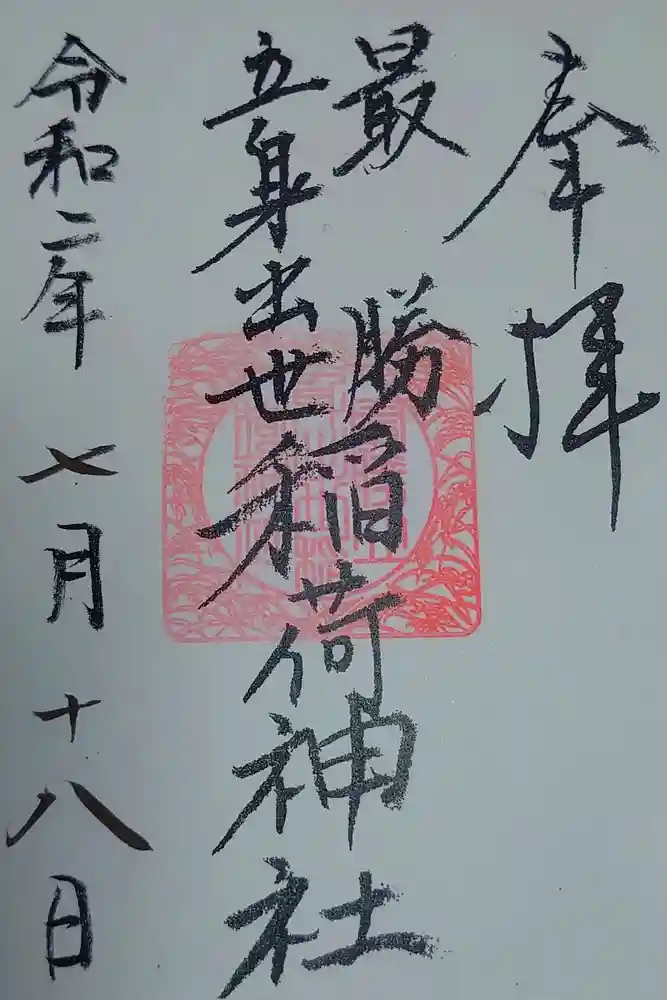 奉拝
最勝
立身出世稲荷神社
令和二年七月十八日